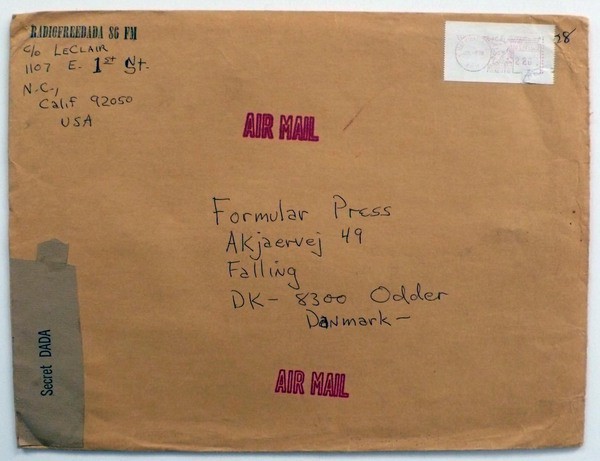 RADIOFREEDADA 86 FM
c/o LeClair
1107 E. 1st St.
N.C.,
Calif 92050
USA
AIR MAIL
Formular Press
AKjaervej 49
Falling
DK- 8300 Odder
Danmark-
Secret DADA
AIR MAIL